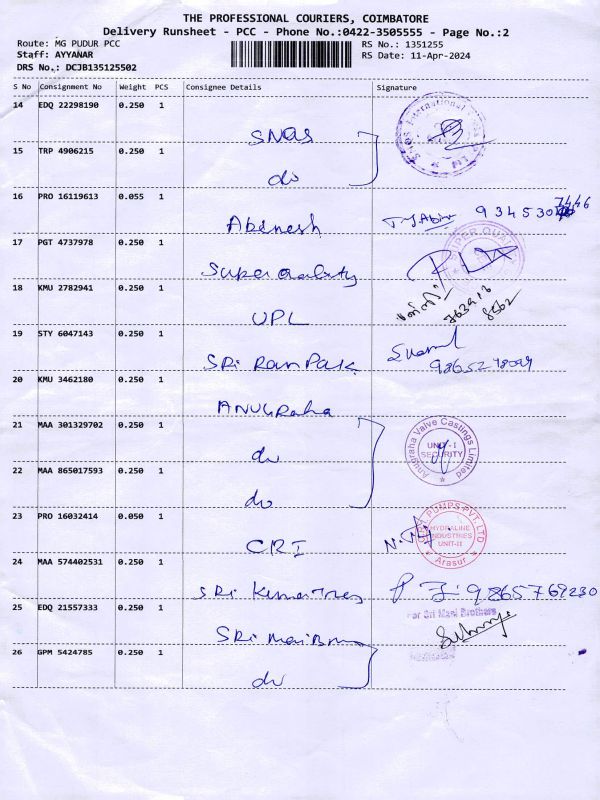 THE PROFESSIONAL COURIERS, COIMBATORE
Delivery Runsheet - PCC - Phone No.:0422-3505555 - Page No.:2
Route: MG PUDUR PCC
Staff: AYYANAR
DRS No.: DCJB135125502
RS No.: 1351255
RS Date: 11-Apr-2024
S No Consignment No Weight PCS Consignee Details Signature
14 EDQ 22298190 0.250 1
SNQS
15 TRP 4906215 0.250 1
do
16 PRO 16119613 0.055 1
Abenesh
17 PGT 4737978 0.250 1
Super Quality
18 KMU 2782941 0.250 1
UPL
19 STY 6047143 0.250 1
SRi Ram Pak
20 KMU 3462180 0.250 1
ANUGRaha
21 MAA 301329702 0.250 1
do
Anugraha Valve Castings Limited
UNIT-I
SECURITY
22 MAA 865017593 0.250 1
do
23 PRO 16032414 0.050 1
CRI
PUMPS PVT. LTD
HYDRALINE
INDUSTRIES
UNIT-II
Arasur
24 MAA 574402531 0.250 1
9865769230
25 EDQ 21557333 0.250 1
For Sri Mani Brothers
26 GPM 5424785 0.250 1
do